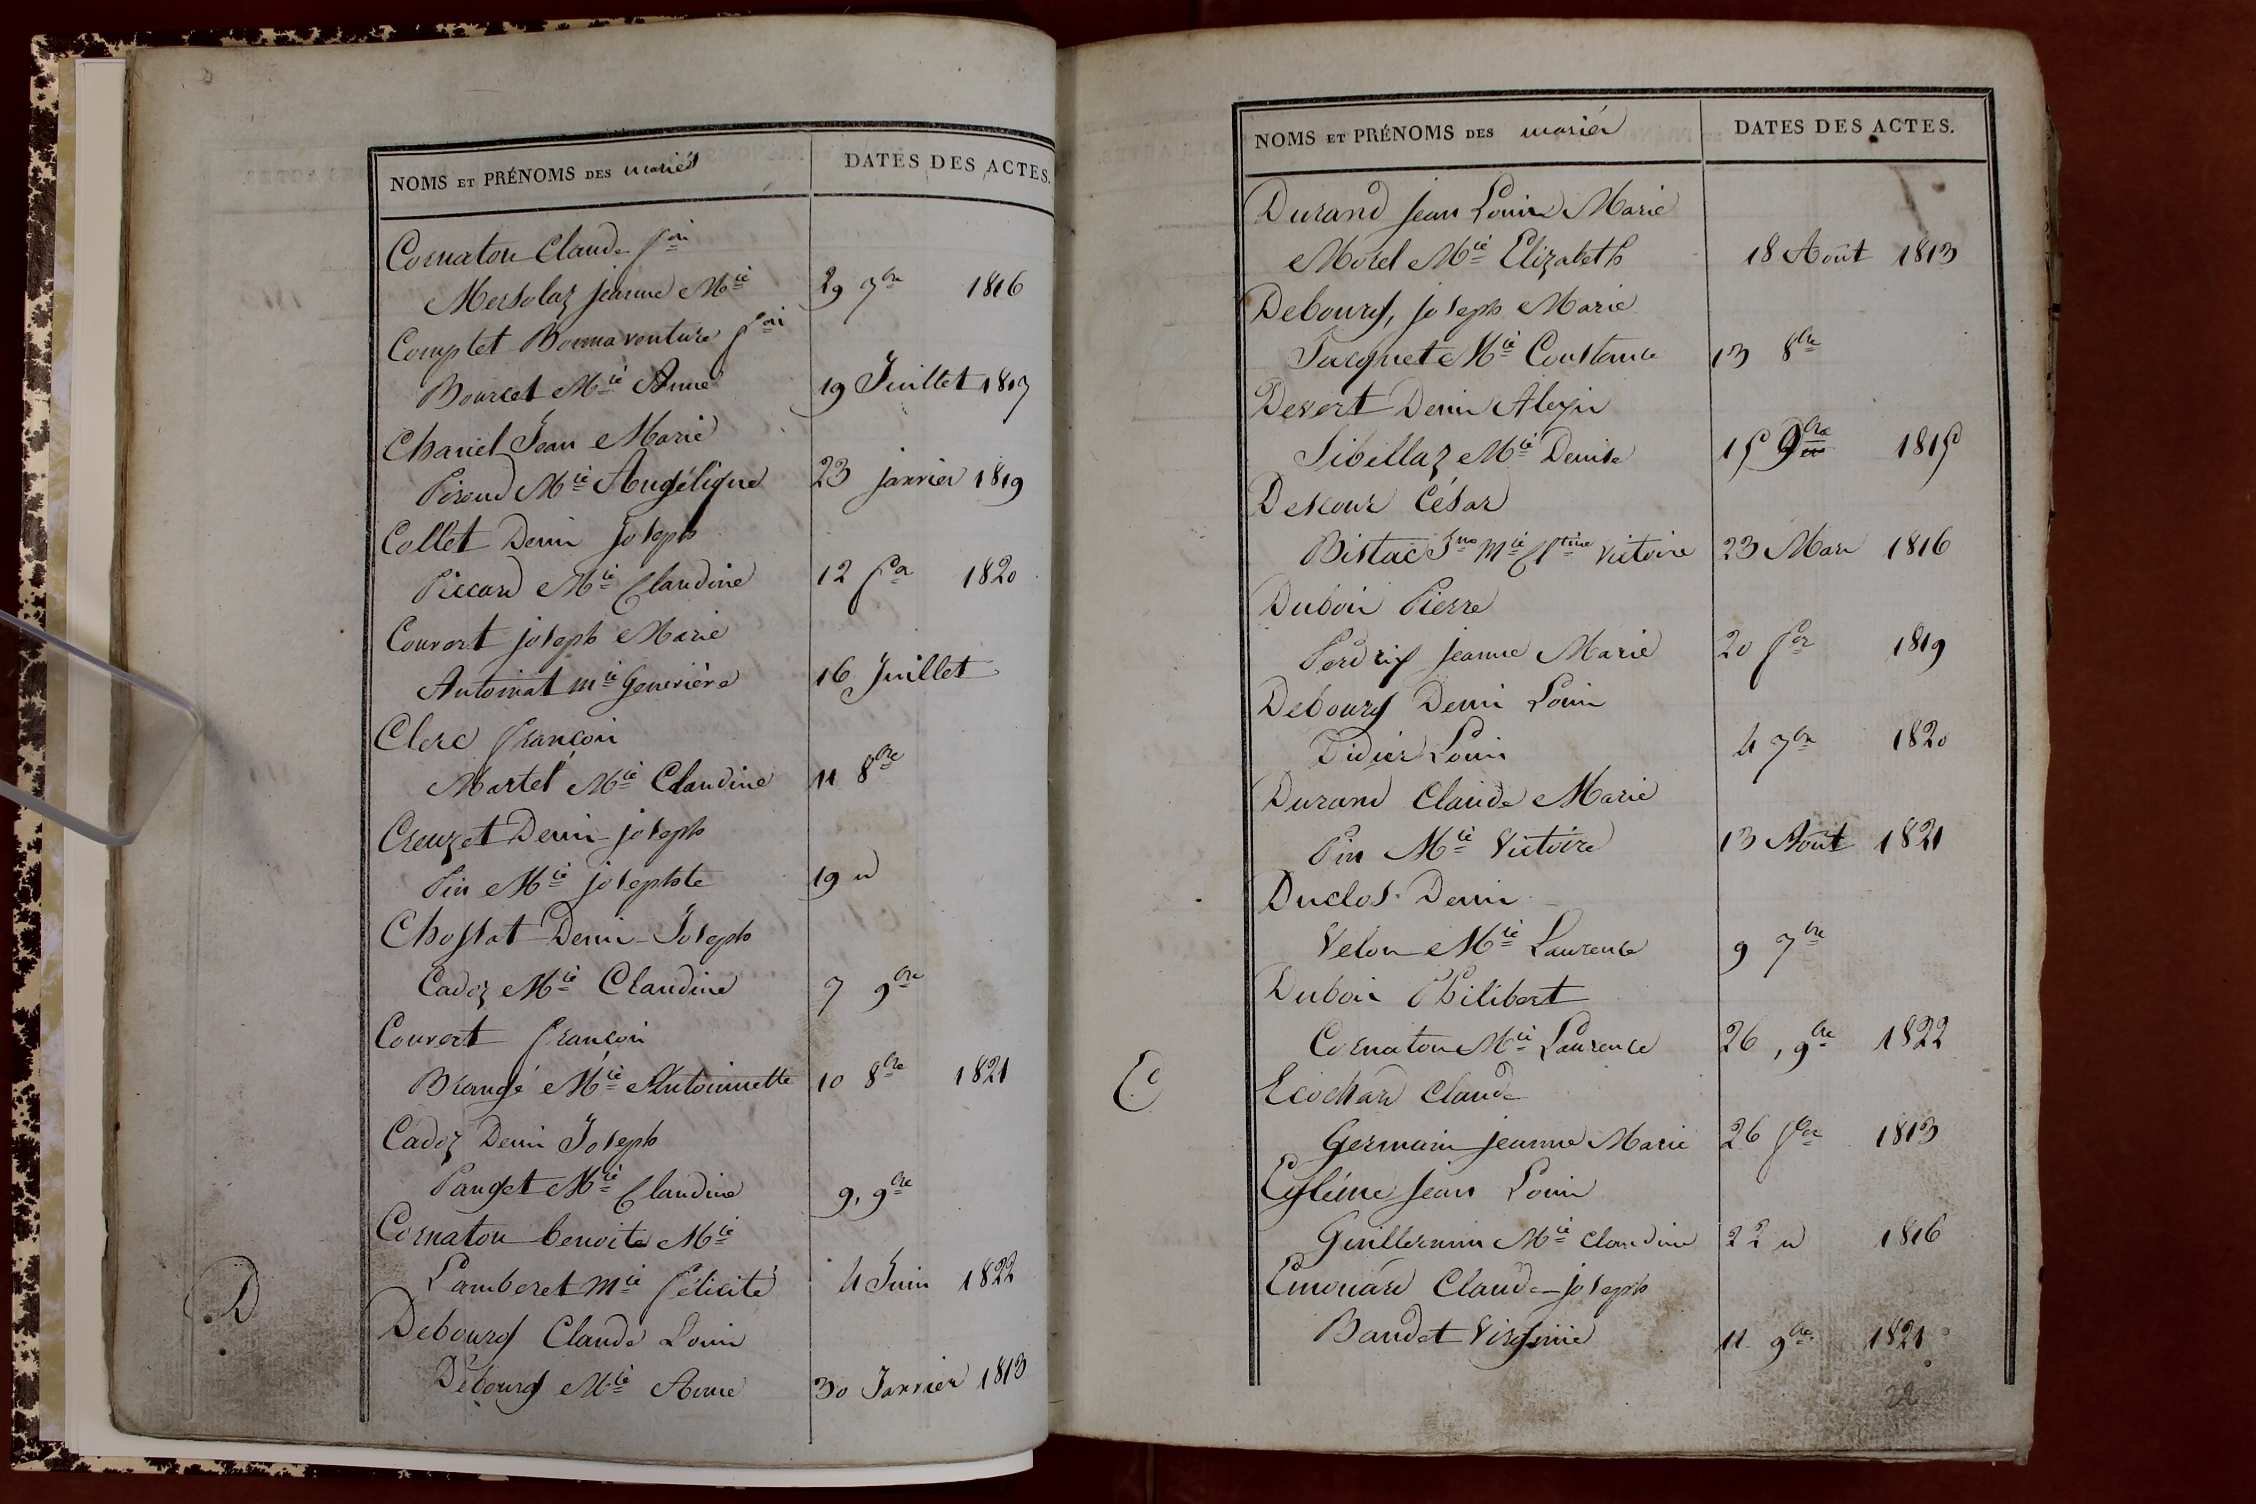 NOMS ET PRÉNOMS DES mariés DATES DES ACTES.
Cornaton Claude fois
Mersolaz jeanne Mie 29 7bre 1816
Complet Bonnaventure fois
Bourcet Mie Anne 19 Juillet 1817
Chanel Jean Marie
Piroud Mie Angélique 23 janvier 1819
Collet Denis joseph
Piccard Mie Claudine 12 fer 1820
Couvert joseph Marie
Antoinat mie Geneviève 16 Juillet
Clerc françois
Martel Mie Claudine 11 8bre
Creuzet Denis joseph
Pin Mie josephte 19 "
Chossat Denis Joseph
Cadoz Mie Claudine 7 9bre
Couvert françois
Brangé Mie Antoinette 10 8bre 1821
Cadoz Denis Joseph
Panget Mie Claudine 9, 9bre
Cornaton benoite Mie
Lamberet mie félicité 4 Juin 1822
D
Debourg Claude Louis
Debourg Mie Anne 30 Janvier 1813
NOMS ET PRÉNOMS DES mariés DATES DES ACTES.
Durand jean Louis Marie
Morel Mie Elizabeth 18 Août 1813
Debourg, joseph Marie
Jacquet Mie Constance 13 8bre
Devert Denis Alexis
Sibellaz Mie Denise 15 9bre 1815
Descour César
Bistac Jne Mie Victoire 23 Mars 1816
Dubois Pierre
Perdrix jeanne Marie 20 fer 1819
Debourg Denis Louis
Didier Louis 4 7bre 1820
Durand Claude Marie
Pin Mie Victoire 13 Août 1821
Duclos Denis
Velon Mie Laurence 9 7bre
Dubois Philibert
Cornaton Mie Laurence 26, 9bre 1822
E
Ecochard Claude
Germain jeanne Marie 26 fer 1813
jean Louis
Guillermin Mie Claudine 22 " 1816
Emonard Claude joseph
Baudet Virginie 11 9bre 1821
22